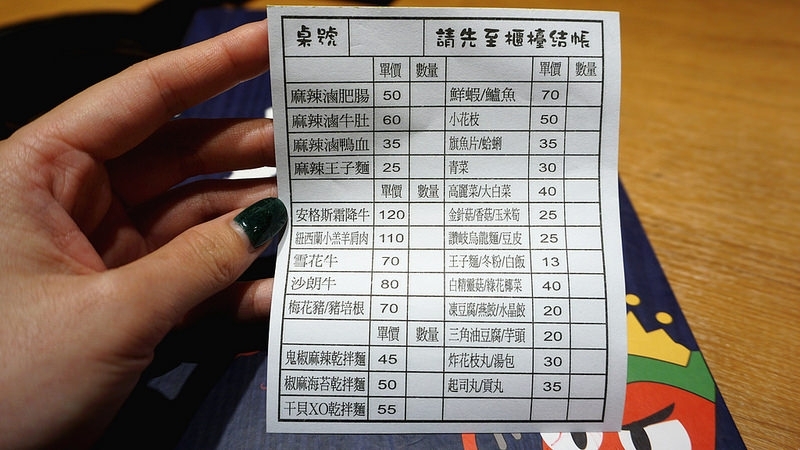 桌號 請先至櫃檯結帳
單價 數量 單價 數量
麻辣滷肥腸 50 鮮蝦/鱸魚 70
麻辣滷牛肚 60 小花枝 50
麻辣滷鴨血 35 旗魚片/蛤蜊 35
麻辣王子麵 25 青菜 30
單價 數量 高麗菜/大白菜 40
安格斯霜降牛 120 金針菇/香菇/玉米筍 25
紐西蘭小羔羊肩肉 110 讚岐烏龍麵/豆皮 25
雪花牛 70 王子麵/冬粉/白飯 13
沙朗牛 80 白精靈菇/綠花椰菜 40
梅花豬/豬培根 70 凍豆腐/燕餃/水晶餃 20
單價 數量 三角油豆腐/芋頭 20
鬼椒麻辣乾拌麵 45 炸花枝丸/湯包 30
椒麻海苔乾拌麵 50 起司丸/貢丸 35
干貝XO乾拌麵 55